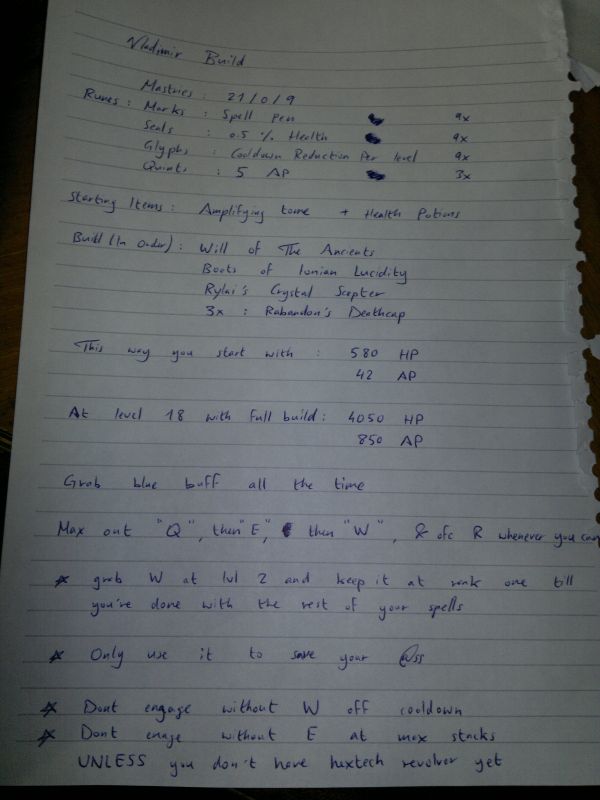 Vladimir Build
Mastries : 21/0/9
Runes : Marks : Spell Pen 9x
Seals : 0.5 % Health 9x
Glyphs : Cooldown Reduction Per level 9x
Quints : 5 AP 3x
Starting Items : Amplifying tome + Health Potions
Build (In Order) : Will of The Ancients
Boots of Ionian Lucidity
Rylai's Crystal Scepter
3x : Rabandon's Deathcap
This way you start with : 580 HP
42 AP
At level 18 with Full build : 4050 HP
850 AP
Grab blue buff all the time
Max out "Q", then "E", then "W", & ofc R whenever you can
* grab W at lvl 2 and keep it at rank one till
you're done with the rest of your spells
* Only use it to save your @ss
* Dont engage without W off cooldown
* Dont enage without E at max stacks
UNLESS you don't have hextech revolver yet